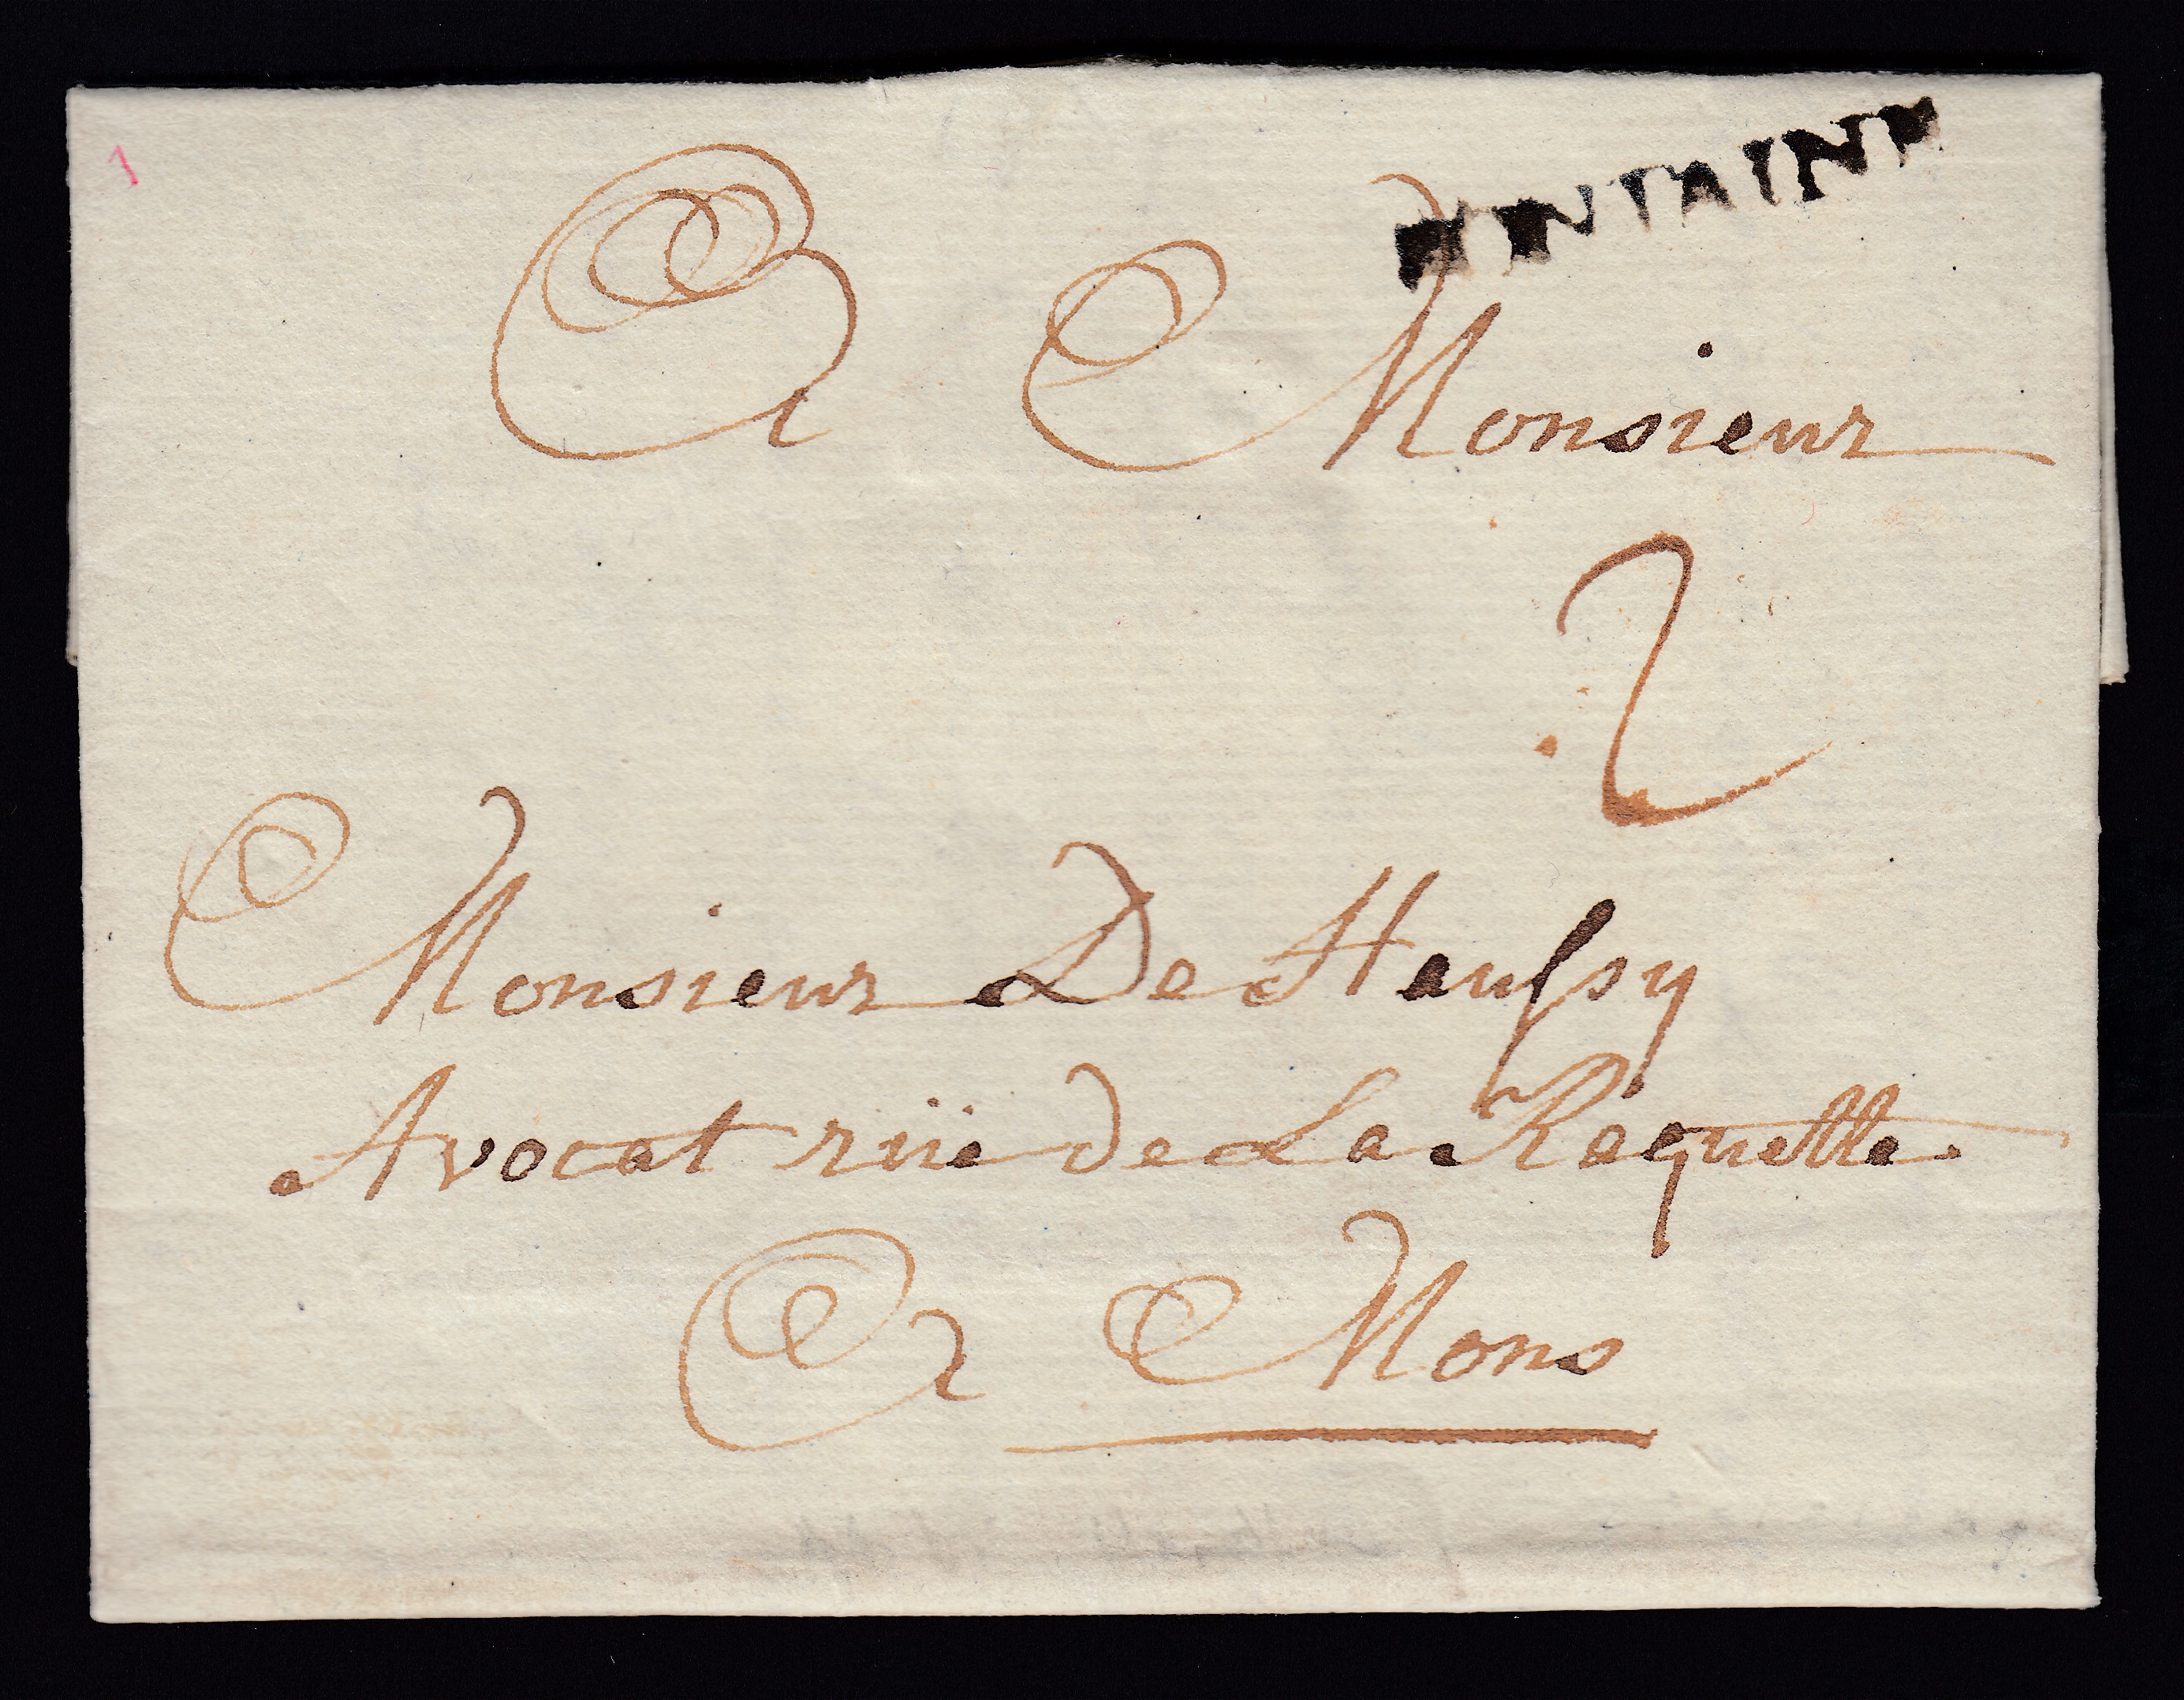 1
FONTAINE
A Monsieur
2
Monsieur De Haussy
Avocat rüe de La Raquette.
A Mons